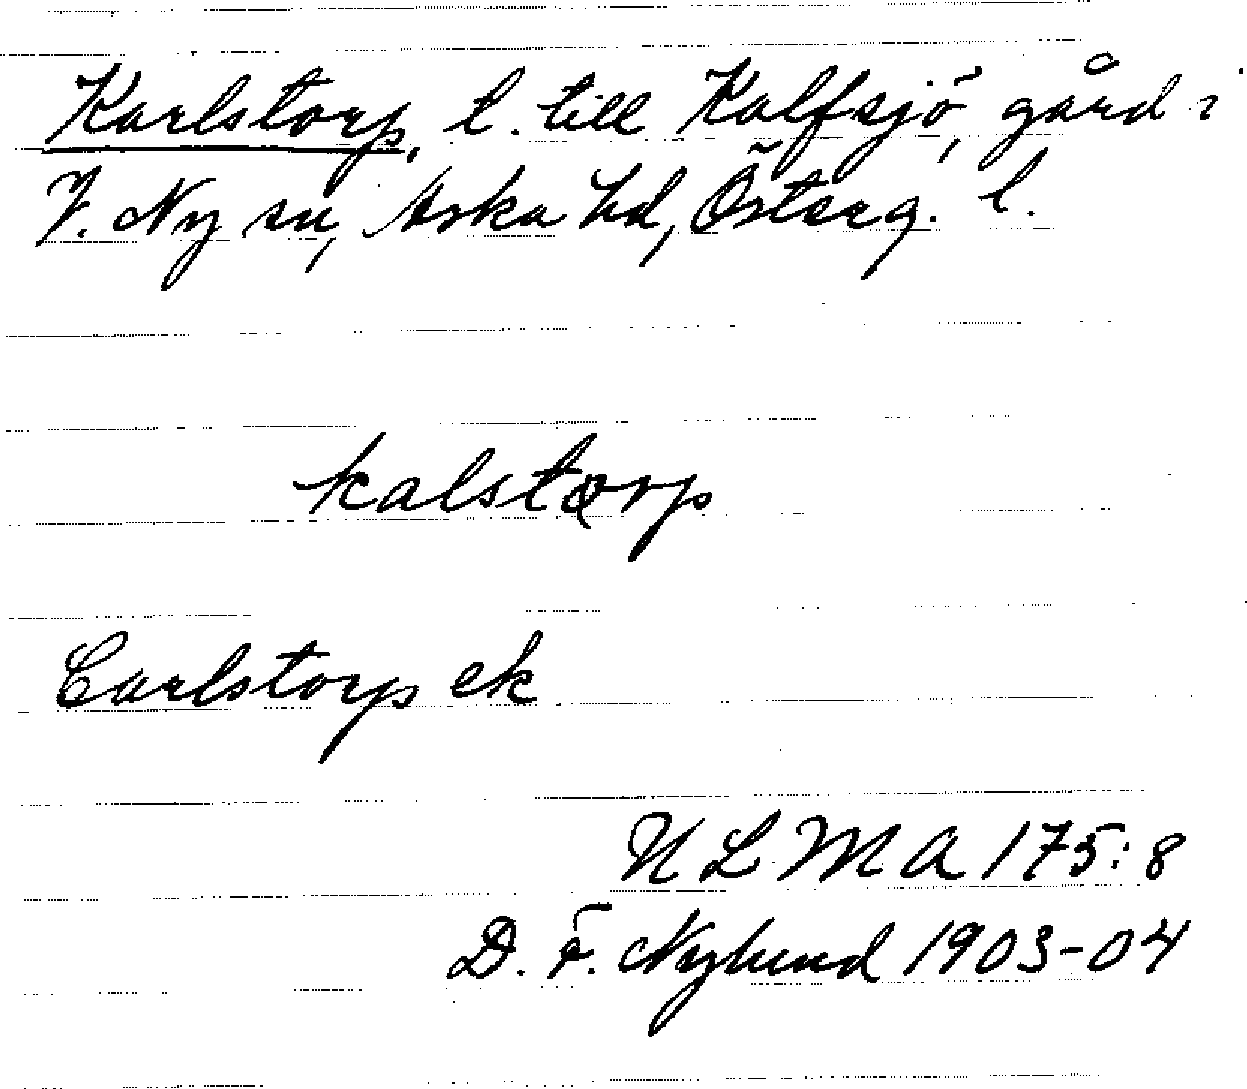 Karlstorp, l. till Kalfsjö, gård i
V. Ny sn, Aska hd, Österg. l.
kalstorp
Carlstorp ek
ULMA 175:8
D. F. Nylund 1903-04